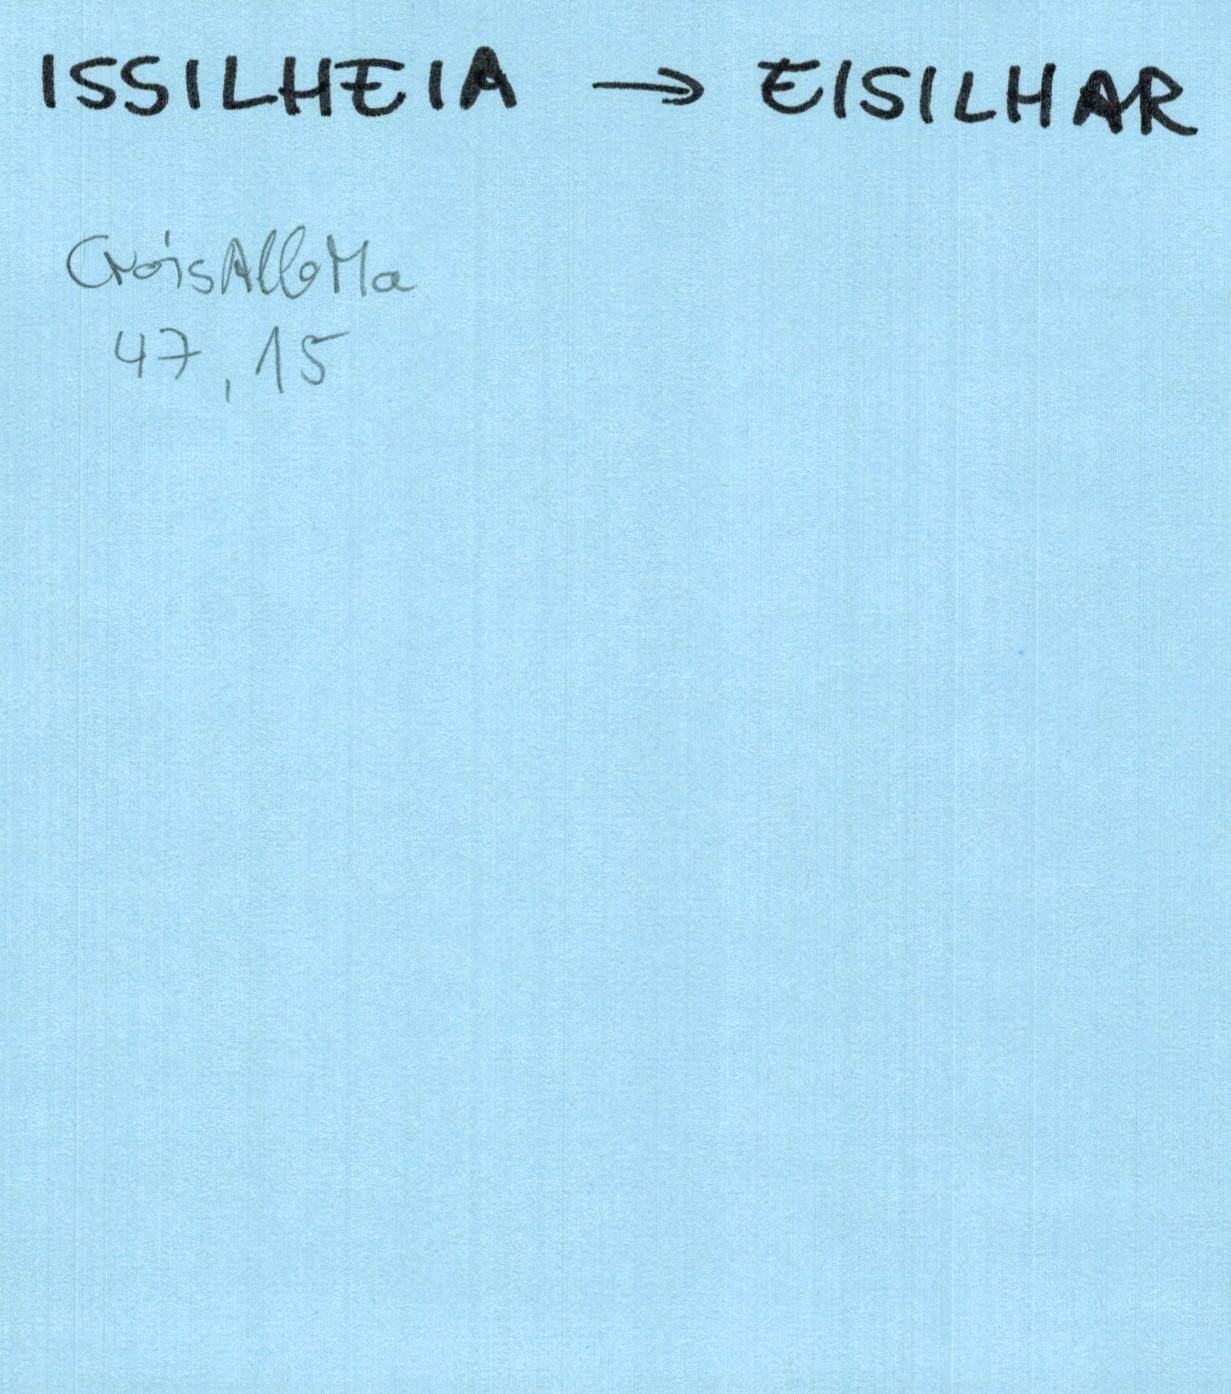 ISSILHEIA → EISILHAR
CroisAlbMa
47,15